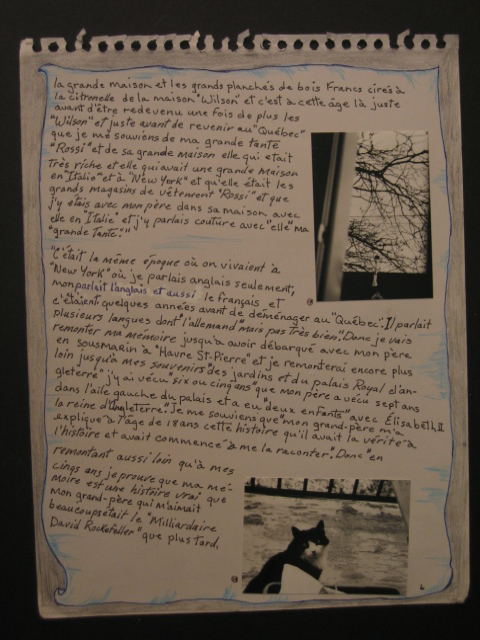 la grande maison et les grands planchés de bois Francs cirés à
la citronelle de la maison "Wilson" et c'est à cette âge là juste
avant d'être redevenu une fois de plus les
"Wilson" et juste avant de revenir au "Québec"
que je me souviens de ma grande tante
"Rossi" et de sa grande maison elle qui était
Très riche et elle qui avait une grande maison
en "Italie" et à "New York" et qu'elle était les
grands magasins de vêtement "Rossi" et que
j'y étais avec mon père dans sa maison avec
elle en "Italie" et j'y parlais couture avec "elle" ma
"grande Tante."
"C'était la même époque où on vivaient à
"New York" où je parlais anglais seulement,
mon parlait l'anglais et aussi le français et
c'étaient quelques années avant de déménager au "Québec". Il parlait
plusieurs langues dont "l'allemand" mais pas Très bien". Donc je vais
remonter ma mémoire jusqu'à avoir débarqué avec mon père
en sousmarin à "Havre St-Pierre" et je remonterai encore plus
loin jusqu'à mes souvenirs des jardins et du palais Royal d'an-
gleterre" j'y ai vécu "six ou cinq ans" que mon père a vécu sept ans
dans l'aile gauche du palais et a eu "deux enfants" avec Élisabeth II
la reine d'Angleterre". Je me souviens que "mon grand-père m'a
expliqué à l'âge de 18 ans cette histoire qu'il avait la vérité à
l'histoire et avait commencé à me la raconter". Donc "en
remontant aussi loin qu'à mes
cinqs ans je prouve que ma mé-
moire est une histoire vrai que
mon grand-père qui m'aimait
beaucoup était le "Milliardaire
David Rockefeller" que plus tard,